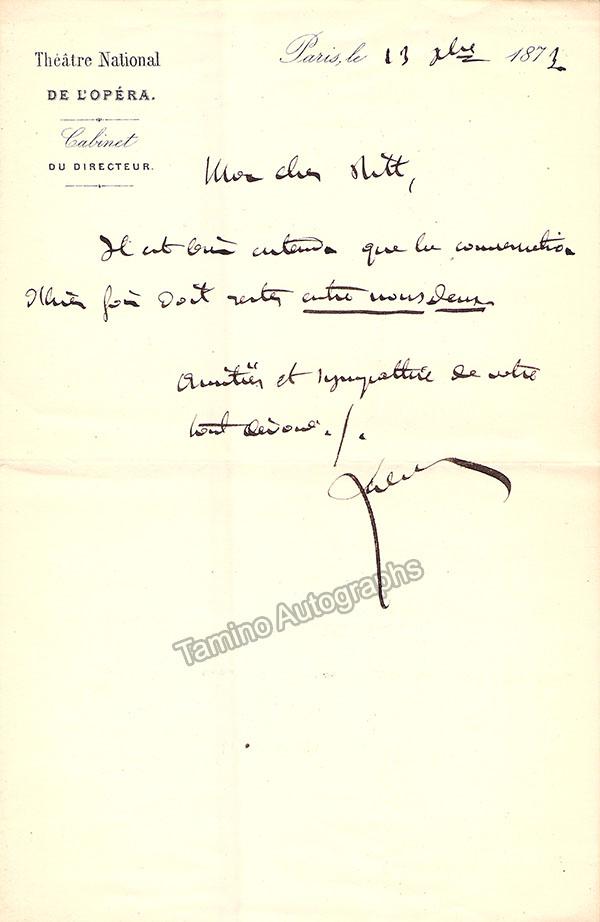 Théâtre National
DE L'OPÉRA.
Cabinet
DU DIRECTEUR.
Paris, le 13 1873
Mon cher
Il est bien entendu que la conversation
doit rester entre nous deux
Amitiés et sympathie de votre
tout dévoué ./.
Tamino Autographs